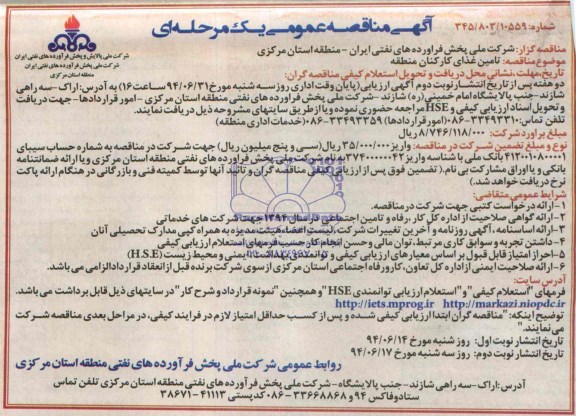 آگهی مناقصه عمومی یک مرحله‌ای
شماره: ۳۴۵/۸۰۳/۱۰۵۵۹
شرکت ملی پالایش و پخش فرآورده های نفتی ایران
شرکت ملی پخش فرآورده های نفتی ایران
منطقه استان مرکزی
مناقصه گزار: شرکت ملی پخش فراورده های نفتی ایران - منطقه استان مرکزی
موضوع مناقصه: تامین غذای کارکنان منطقه
تاریخ، مهلت، نشانی محل دریافت و تحویل استعلام کیفی مناقصه گران:
دو هفته پس از تاریخ انتشار نوبت دوم آگهی ارزیابی (پایان وقت اداری روز سه شنبه مورخ ۹۴/۰۶/۳۱ ساعت ۱۶) به آدرس: اراک - سه راهی
شازند - جنب پالایشگاه امام خمینی (ره) شازند - شرکت ملی پخش فراورده های نفتی منطقه استان مرکزی - امور قراردادها - جهت دریافت
و تحویل اسناد ارزیابی کیفی و HSE مراجعه حضوری نموده و یا از طریق سایتهای مشروحه ذیل دریافت نمایند.
تلفن تماس: ۳۳۴۹۳۳۱۰-۰۸۶ (امور قراردادها) ۳۳۴۹۳۳۵۹-۰۸۶ (خدمات اداری منطقه)
مبلغ برآورد شرکت: ۸/۷۴۶/۱۱۸/۰۰۰ ریال
نوع و مبلغ تضمین شرکت در مناقصه: واریز ۳۵/۰۰۰/۰۰۰ ریال (سی و پنج میلیون ریال) جهت شرکت در مناقصه به شماره حساب سیبای
بانک ملی با شناسه واریز به نام شرکت ملی پخش فراورده های نفتی منطقه استان مرکزی و یا ارائه ضمانتنامه
بانکی و یا اوراق مشارکت بی نام. (تضمین فوق پس از ارزیابی کیفی مناقصه گران و تائید آنها توسط کمیته فنی و بازرگانی در هنگام ارائه پاکت
نرخ دریافت خواهد شد.)
شرایط عمومی متقاضی:
۱- ارائه درخواست کتبی جهت شرکت در مناقصه.
۲- ارائه گواهی صلاحیت از اداره کل کار، رفاه و تامین اجتماعی در سال ۱۳۹۴ جهت شرکت های خدماتی
۳- ارائه اساسنامه، آگهی روزنامه و آخرین تغییرات شرکت، لیست اعضاء هیئت مدیره به همراه کپی مدارک تحصیلی آنان
۴- داشتن تجربه و سوابق کاری مرتبط، توان مالی و حسن انجام کار حسب فرمهای استعلام ارزیابی کیفی
۵- احراز امتیاز قابل قبول بر اساس معیارهای ارزیابی کیفی و توانمندی بهداشت، ایمنی و محیط زیست (H.S.E)
۶- ارائه صلاحیت ایمنی از اداره کل تعاون، کار و رفاه اجتماعی استان مرکزی از سوی شرکت برنده قبل از انعقاد قرارداد الزامی می باشد.
آدرس سایت:
فرمهای "استعلام کیفی" و "استعلام ارزیابی توانمندی HSE" و همچنین "نمونه قرارداد و شرح کار" در سایتهای ذیل قابل برداشت می باشد.
http://iets.mporg.ir http://markazi.niopdc.ir
توضیح اینکه: "مناقصه گران ابتدا ارزیابی کیفی شده و پس از کسب حداقل امتیاز لازم در فرایند کیفی، در مراحل بعدی مناقصه شرکت
می نمایند."
تاریخ انتشار نوبت اول: روز شنبه مورخ ۹۴/۰۶/۱۴
تاریخ انتشار نوبت دوم: روز سه شنبه مورخ ۹۴/۰۶/۱۷
روابط عمومی شرکت ملی پخش فرآورده های نفتی منطقه استان مرکزی
آدرس: اراک - سه راهی شازند - جنب پالایشگاه - شرکت ملی پخش فرآورده های نفتی منطقه استان مرکزی تلفن تماس
ستاد و فاکس ۹۴ و ۳۳۶۶۸۸۶۸-۰۸۶ کد پستی ۴۱۱۱۳-۳۸۶۷۱